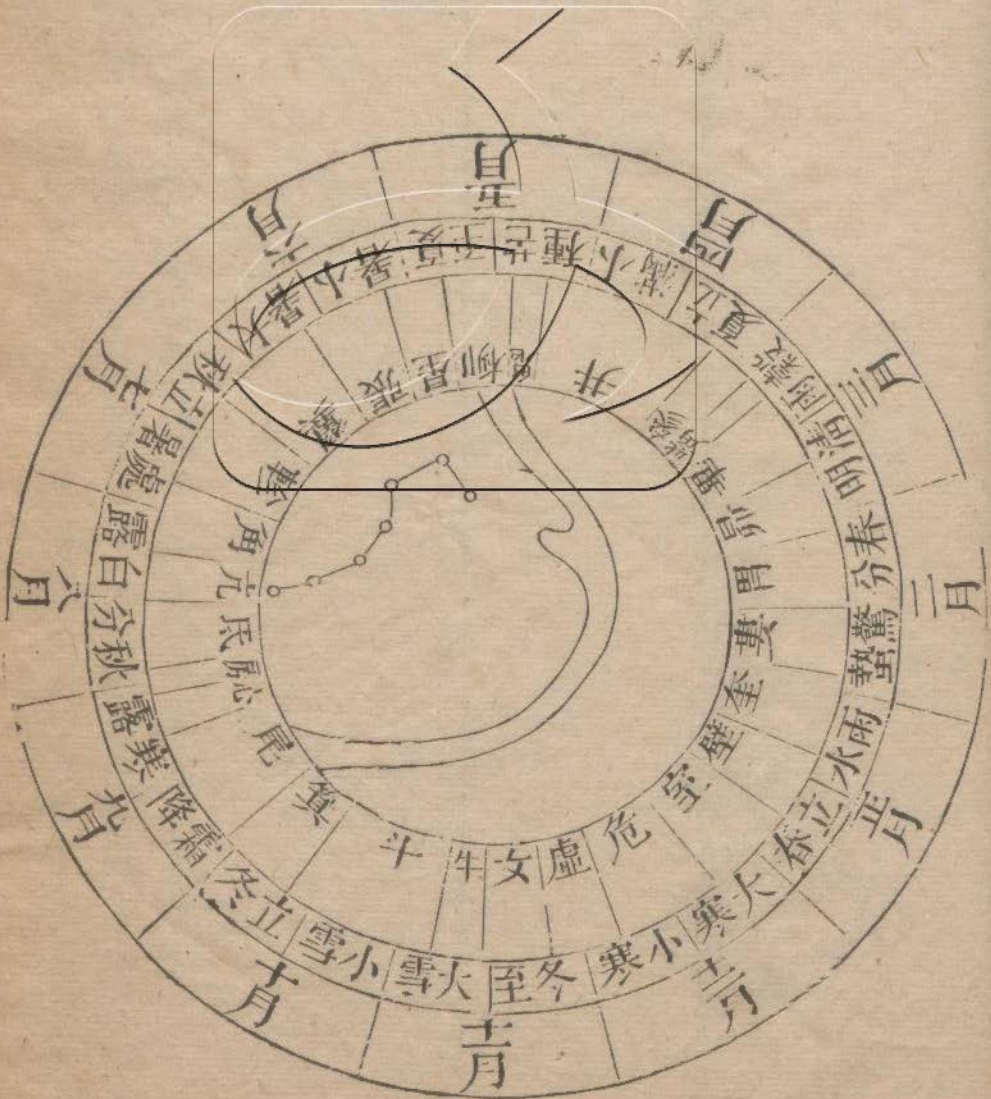 正月
二月
三月
四月
五月
六月
七月
八月
九月
十月
十一月
十二月
立春
雨水
驚蟄
春分
清明
穀雨
立夏
小滿
芒種
夏至
小暑
大暑
立秋
處暑
白露
秋分
寒露
霜降
立冬
小雪
大雪
冬至
小寒
大寒
角
亢
氐
房
心
尾
箕
斗
牛
女
虛
危
室
壁
奎
婁
胃
昴
畢
井
柳
星
張
翼
軫